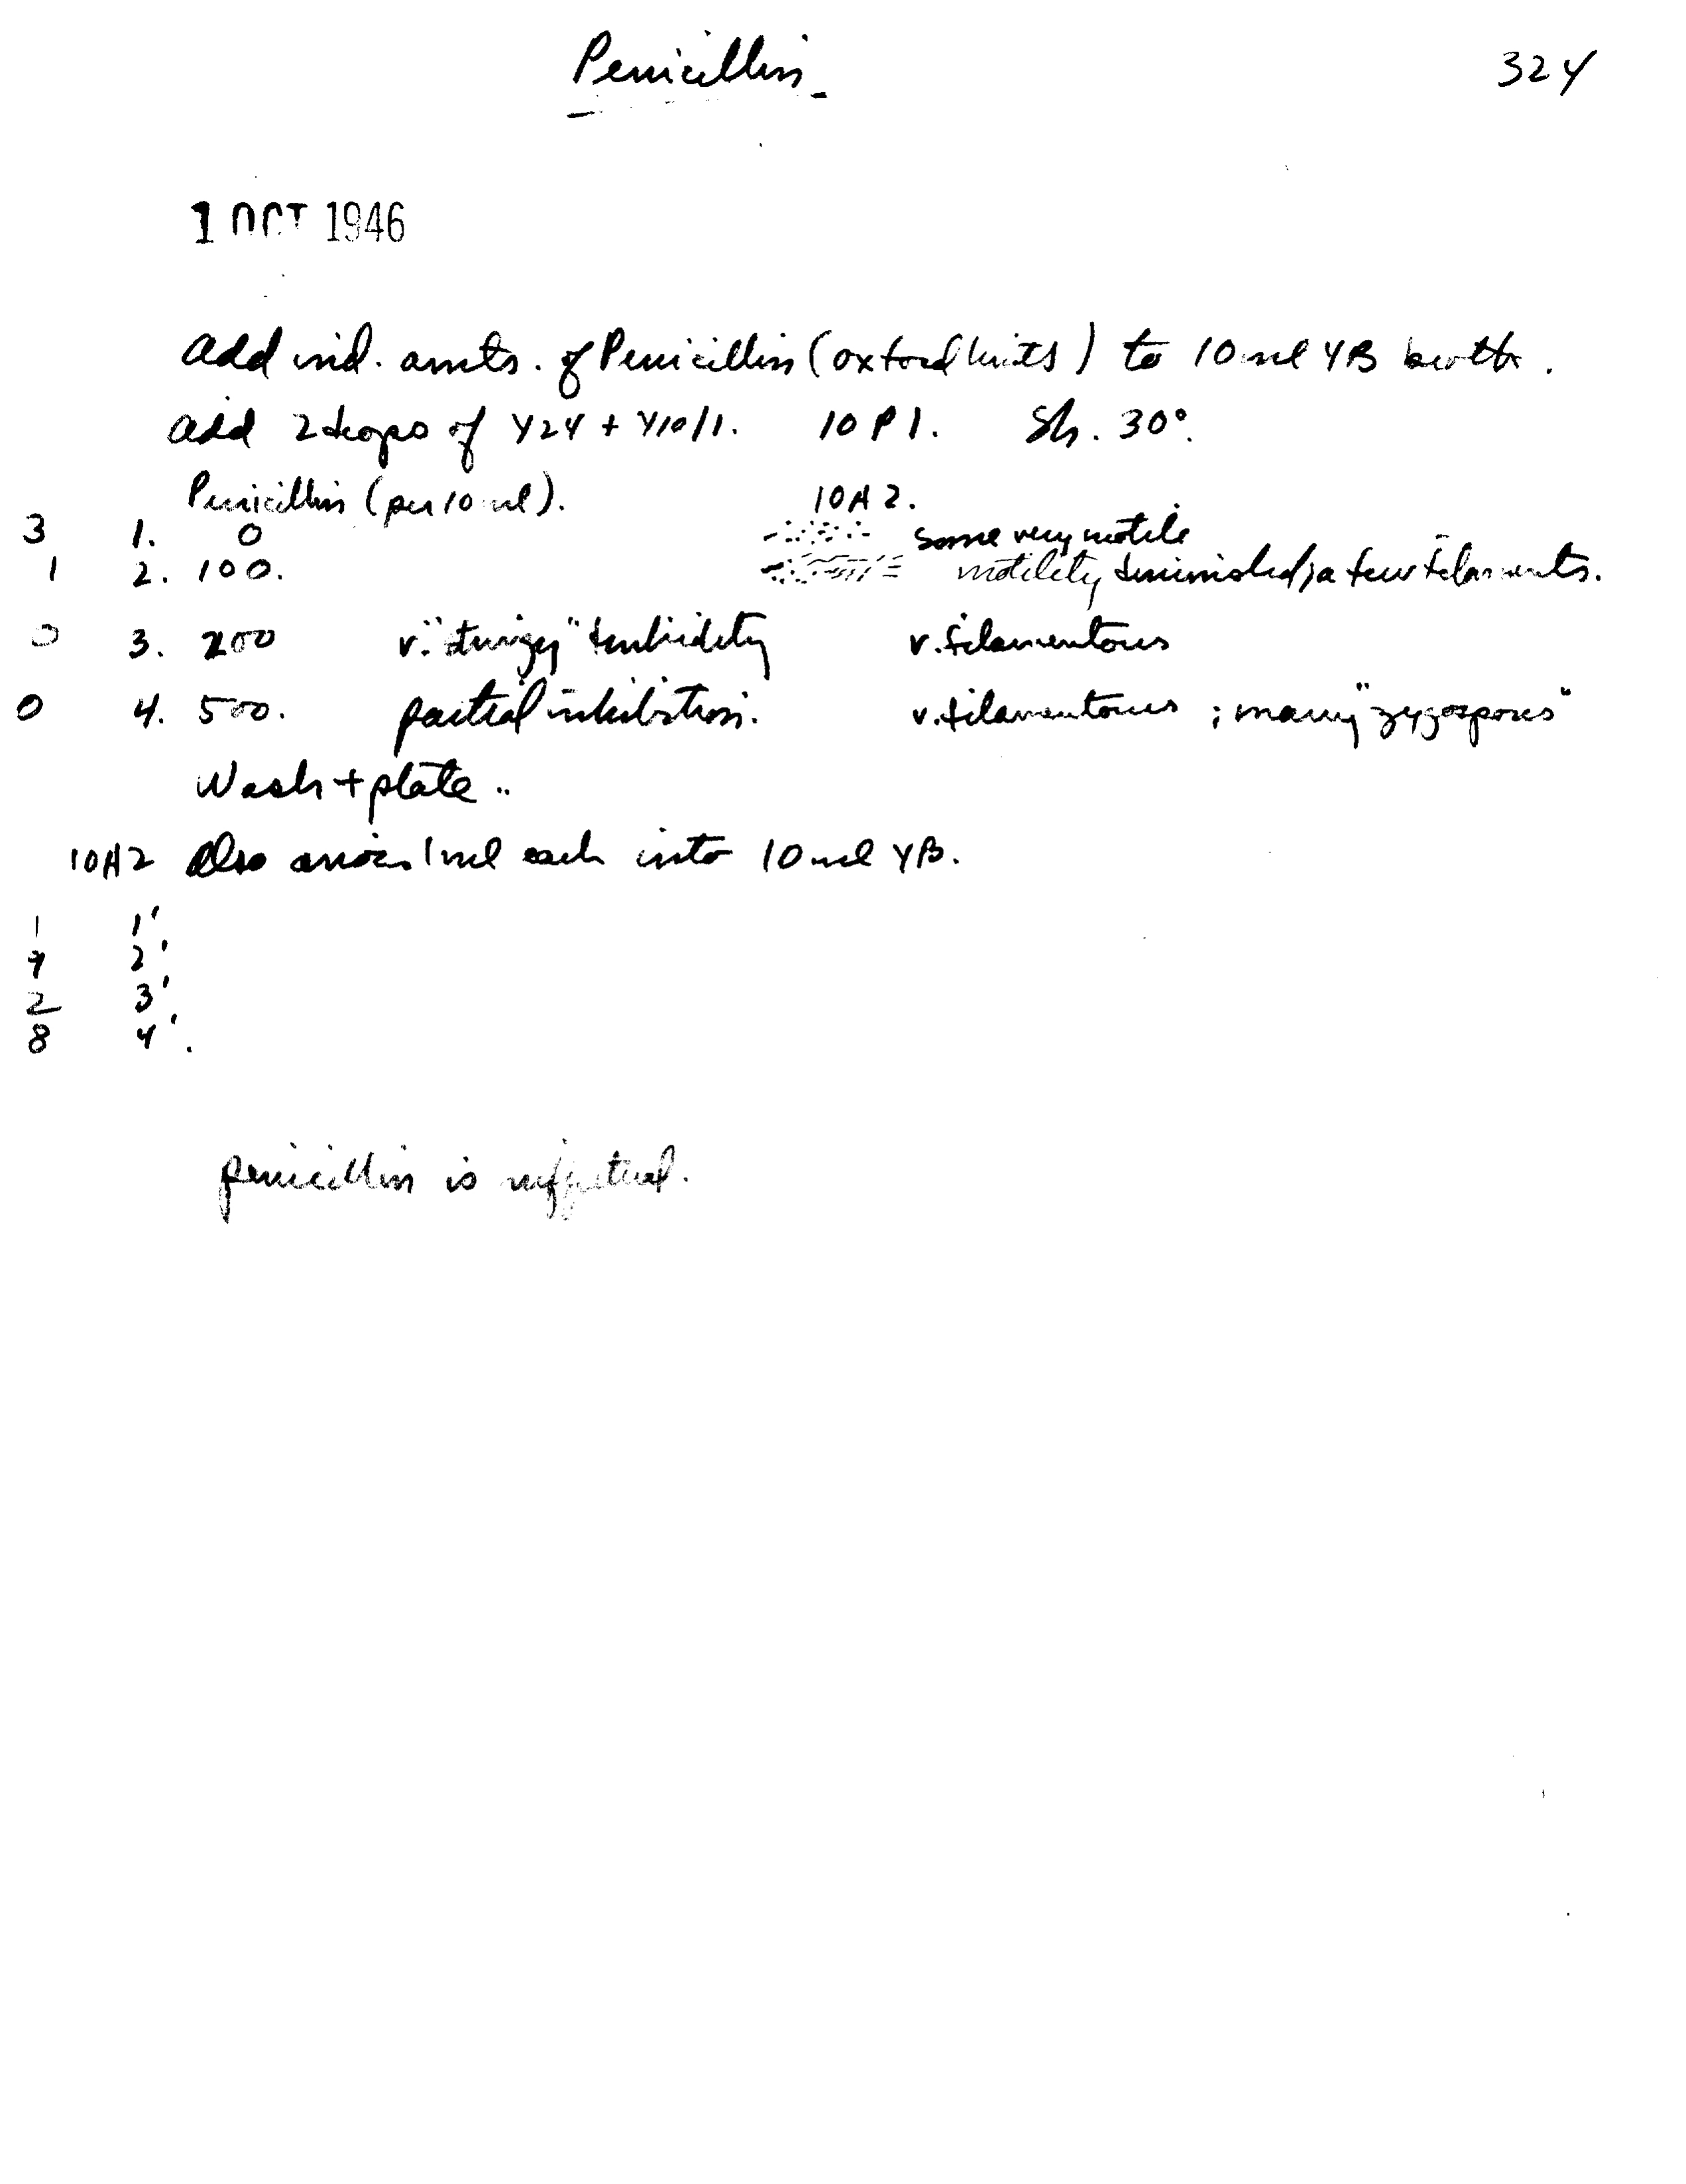 Penicillin
324
1 OCT 1946
Add ind. amts. of Penicillin (oxford units) to 10 ml YB broth.
Add 2 drops of Y24 + Y10/1. 10 P 1. Sh. 30°.
Penicillin (per 10 ml). 10A2.
3 1. 0 some very motile
1 2. 100. motility diminished; a few filaments.
0 3. 200 v. "stringy" turbidity v. filamentous
0 4. 500. partial inhibition. v. filamentous ; many "zygospores"
Wash + plate ..
10A2 Also 1 ml each into 10 ml YB.
1 1'
7 2'
2 3'
8 4'.
penicillin is